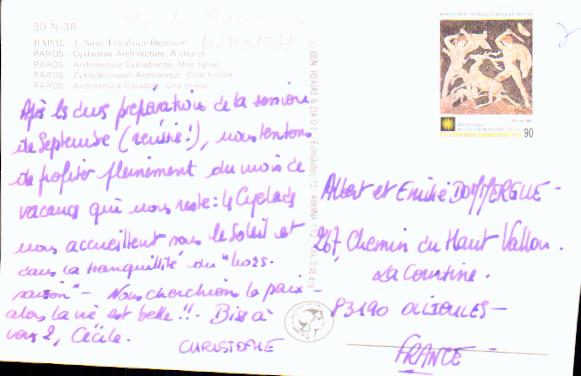 30-N-38
ΠΑΡΟΣ
PAROS - Cycladean Architecture. A church
PAROS - Architecture Cycladienne. Une église
PAROS - Zykladennisson Architektur. Eine Kirche
PAROS - Architettura Cicladica. Una chiesa
Après les dures préparations de la session
de Septembre (réussie!), nous tentons
de profiter pleinement du mois de
vacances qui nous reste: les Cyclades
nous accueillent sous le Soleil et
dans la tranquillité du "hors-
saison" - Nous cherchions la paix -
alors la vie est belle!!. Bises à
vous 2, Cécile.
CHRISTOPHE
90
Albert et Emilie DOMMERGUE -
267, Chemin du Haut Vallon.
La Courtine.
83190 OLLIOULES -
FRANCE -